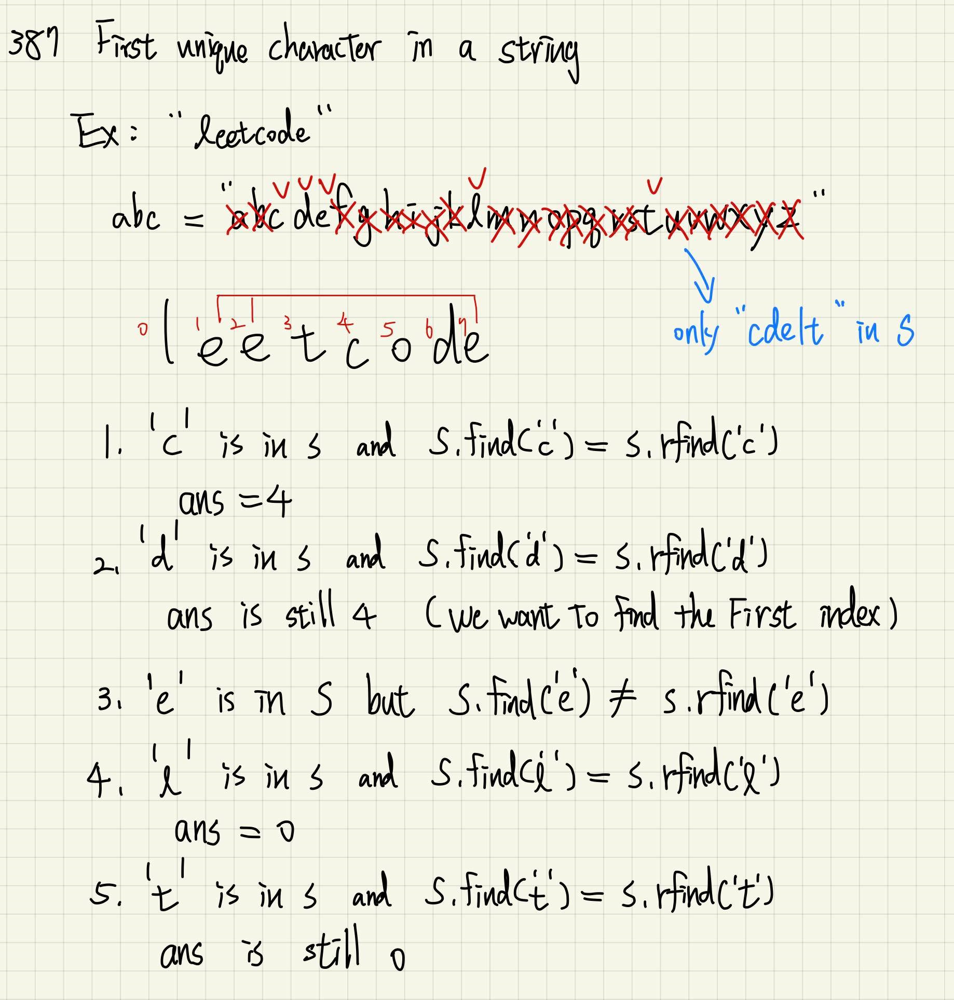 387 First unique character in a string
Ex: "leetcode"
abc = "abcdefghijklmnopqrstuvwxyz"
0 1 2 3 4 5 6 7
leetcode
only "cdelt" in S
1. 'c' is in s and S.find('c') = s.rfind('c')
ans = 4
2. 'd' is in s and S.find('d') = s.rfind('d')
ans is still 4 (we want to find the First index)
3. 'e' is in S but S.find('e') ≠ s.rfind('e')
4. 'l' is in s and S.find('l') = s.rfind('l')
ans = 0
5. 't' is in s and S.find('t') = s.rfind('t')
ans is still 0